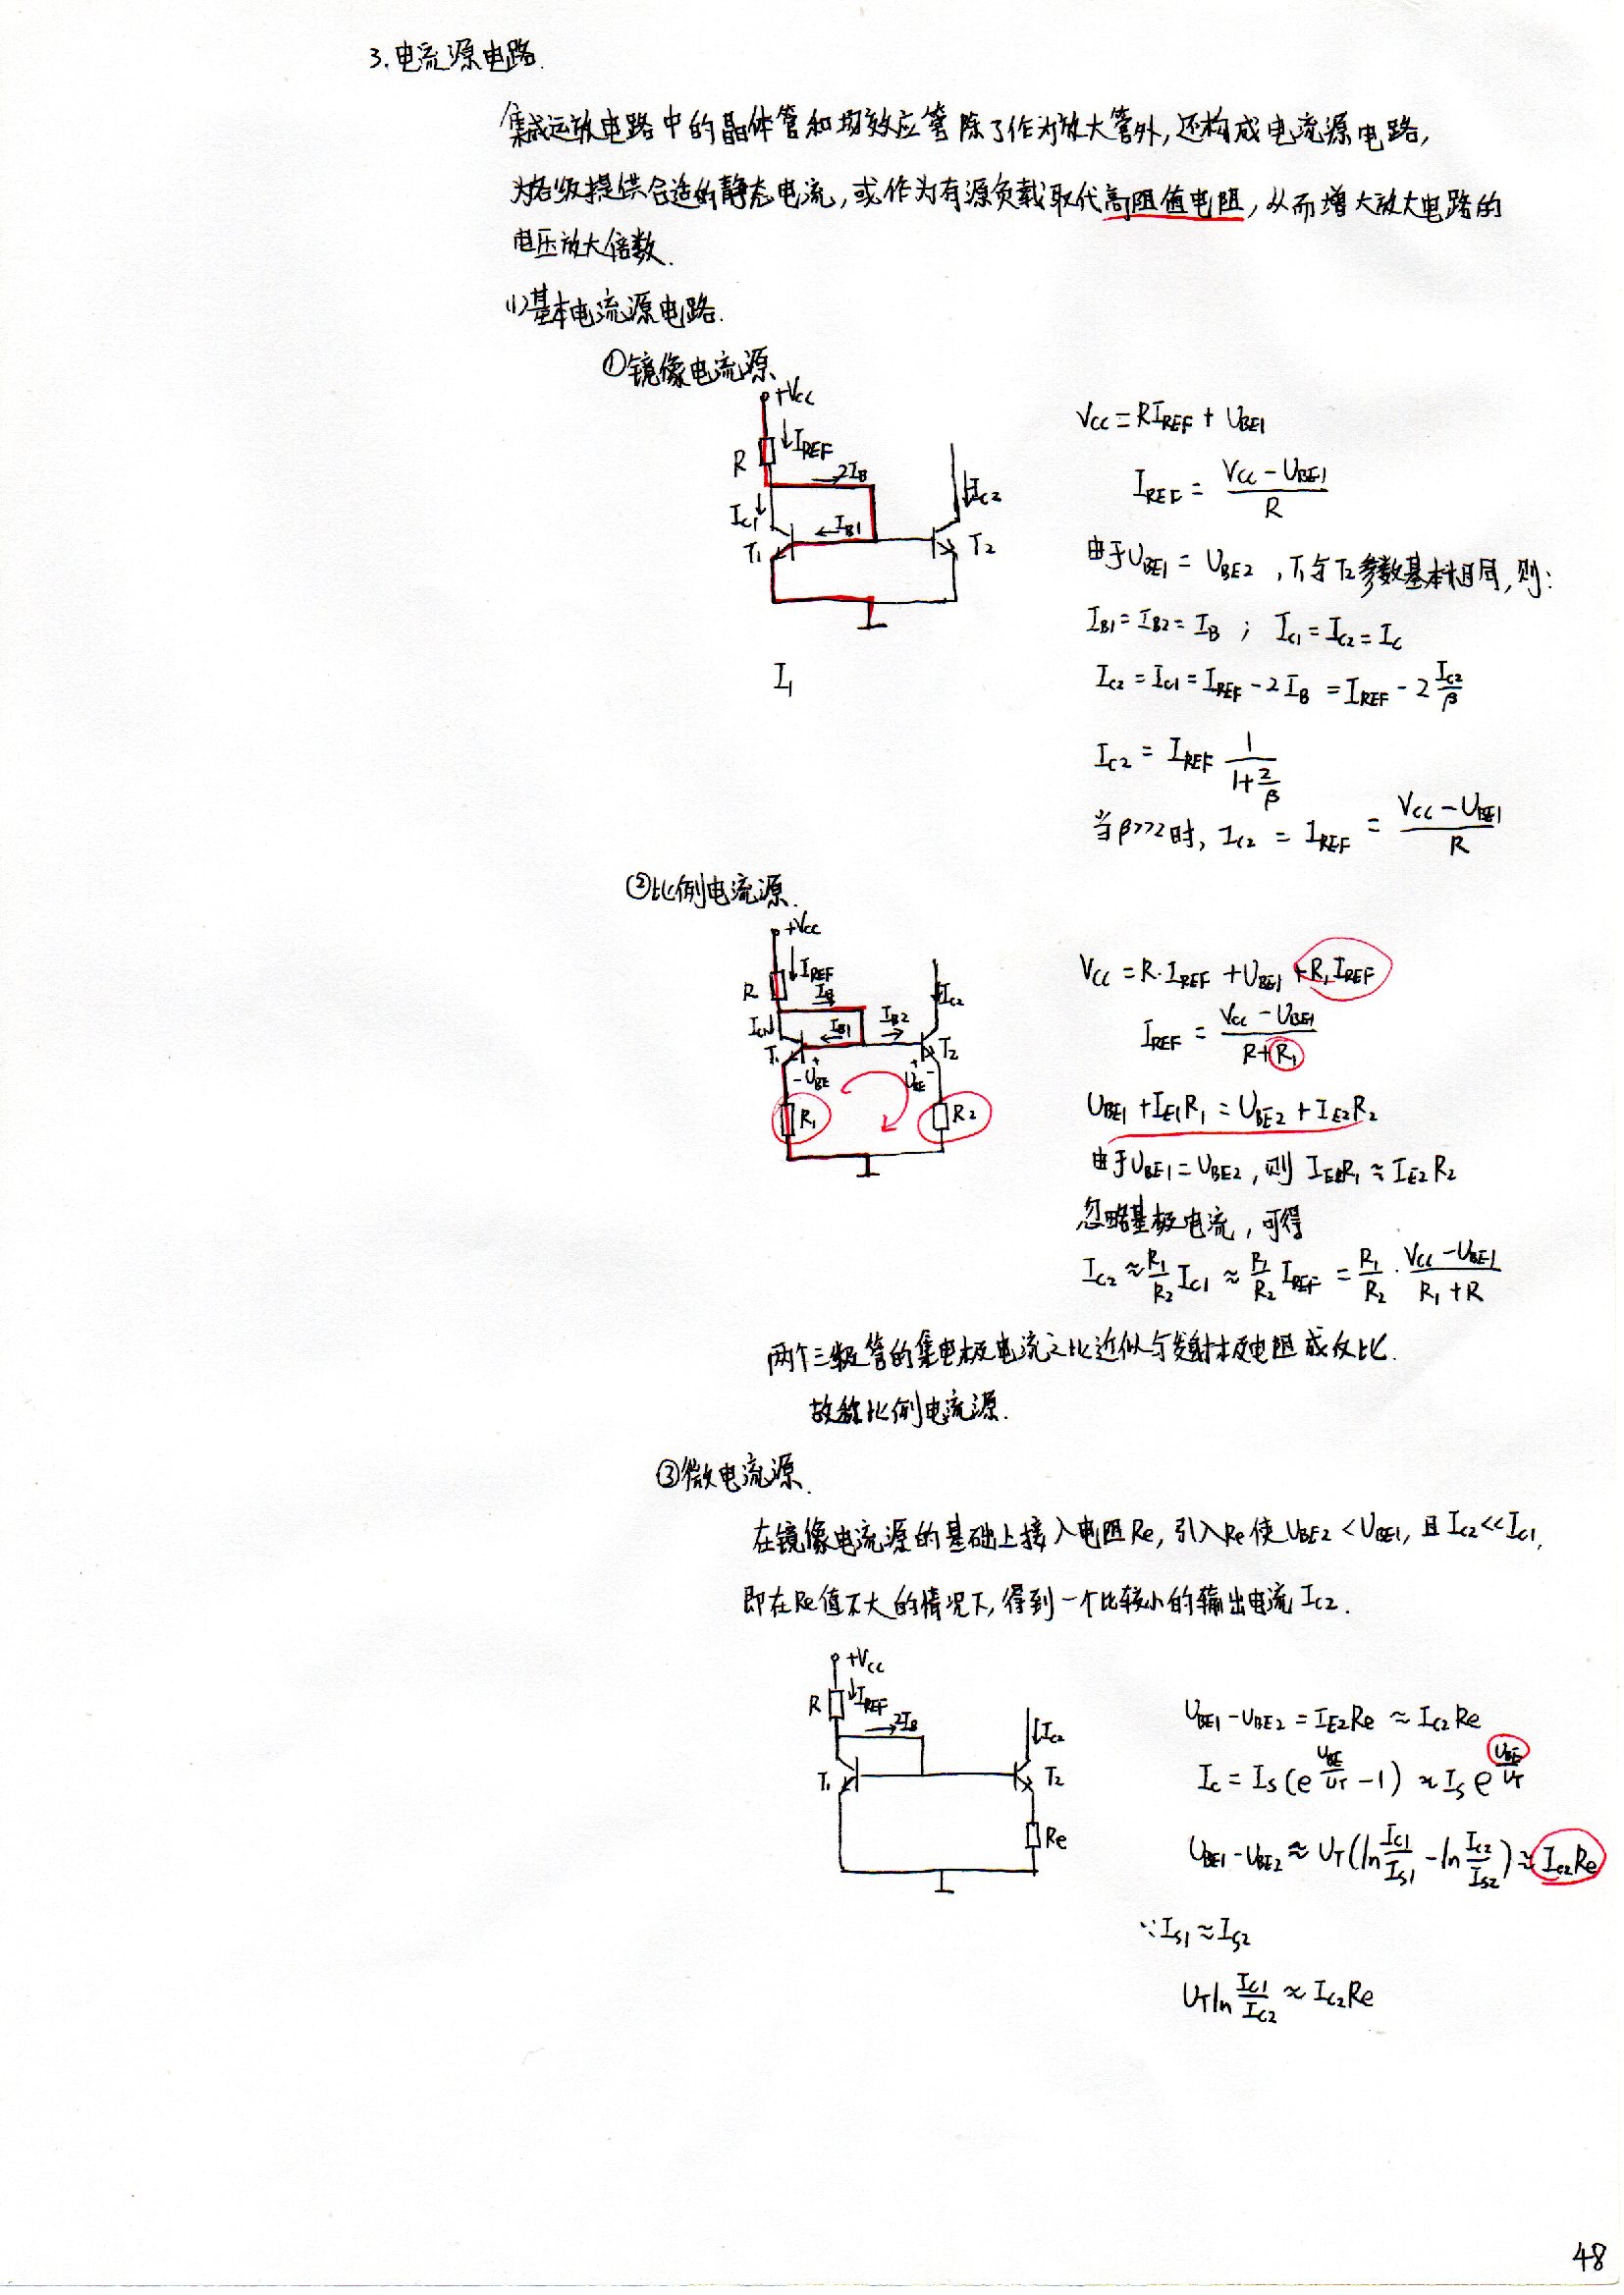 3.电流源电路.
集成运放电路中的晶体管和场效应管除了作为放大管外,还构成电流源电路,
为各级提供合适的静态电流,或作为有源负载取代高阻值电阻,从而增大放大电路的
电压放大倍数.
(1)基本电流源电路.
①镜像电流源
+VCC
R ↓IREF
2IB
IC1↓ ←IB1 ↓IC2
T1 T2
I1
VCC=RIREF+UBE1
IREF=(VCC-UBE1)/R
由于UBE1=UBE2,T1与T2参数基本相同,则:
IB1=IB2=IB;IC1=IC2=IC
IC2=IC1=IREF-2IB=IREF-2IC2/β
IC2=IREF 1/(1+2/β)
当β>>2时,IC2=IREF=(VCC-UBE1)/R
②比例电流源.
+VCC
R ↓IREF
IB
IC1↓ IB1 IB2 ↓IC2
T1 T2
-UBE+ +UBE-
R1 R2
VCC=R·IREF+UBE1+R1IREF
IREF=(VCC-UBE1)/(R+R1)
UBE1+IE1R1=UBE2+IE2R2
由于UBE1=UBE2,则IE1R1≈IE2R2
忽略基极电流,可得
IC2≈R1/R2 IC1≈R1/R2 IREF=R1/R2·(VCC-UBE1)/(R1+R)
两个三极管的集电极电流之比近似与发射极电阻成反比.
故称比例电流源.
③微电流源.
在镜像电流源的基础上接入电阻Re,引入Re使UBE2<UBE1,且IC2<<IC1,
即在Re值不大的情况下,得到一个比较小的输出电流IC2.
+VCC
R ↓IREF
2IB
↓IC2
T1 T2
Re
UBE1-UBE2=IE2Re≈IC2Re
IC=IS(e^(UBE/UT)-1)≈IS e^(UBE/UT)
UBE1-UBE2≈UT(ln IC1/IS1-ln IC2/IS2)≈IC2Re
∵IS1≈IS2
UTln IC1/IC2≈IC2Re
48